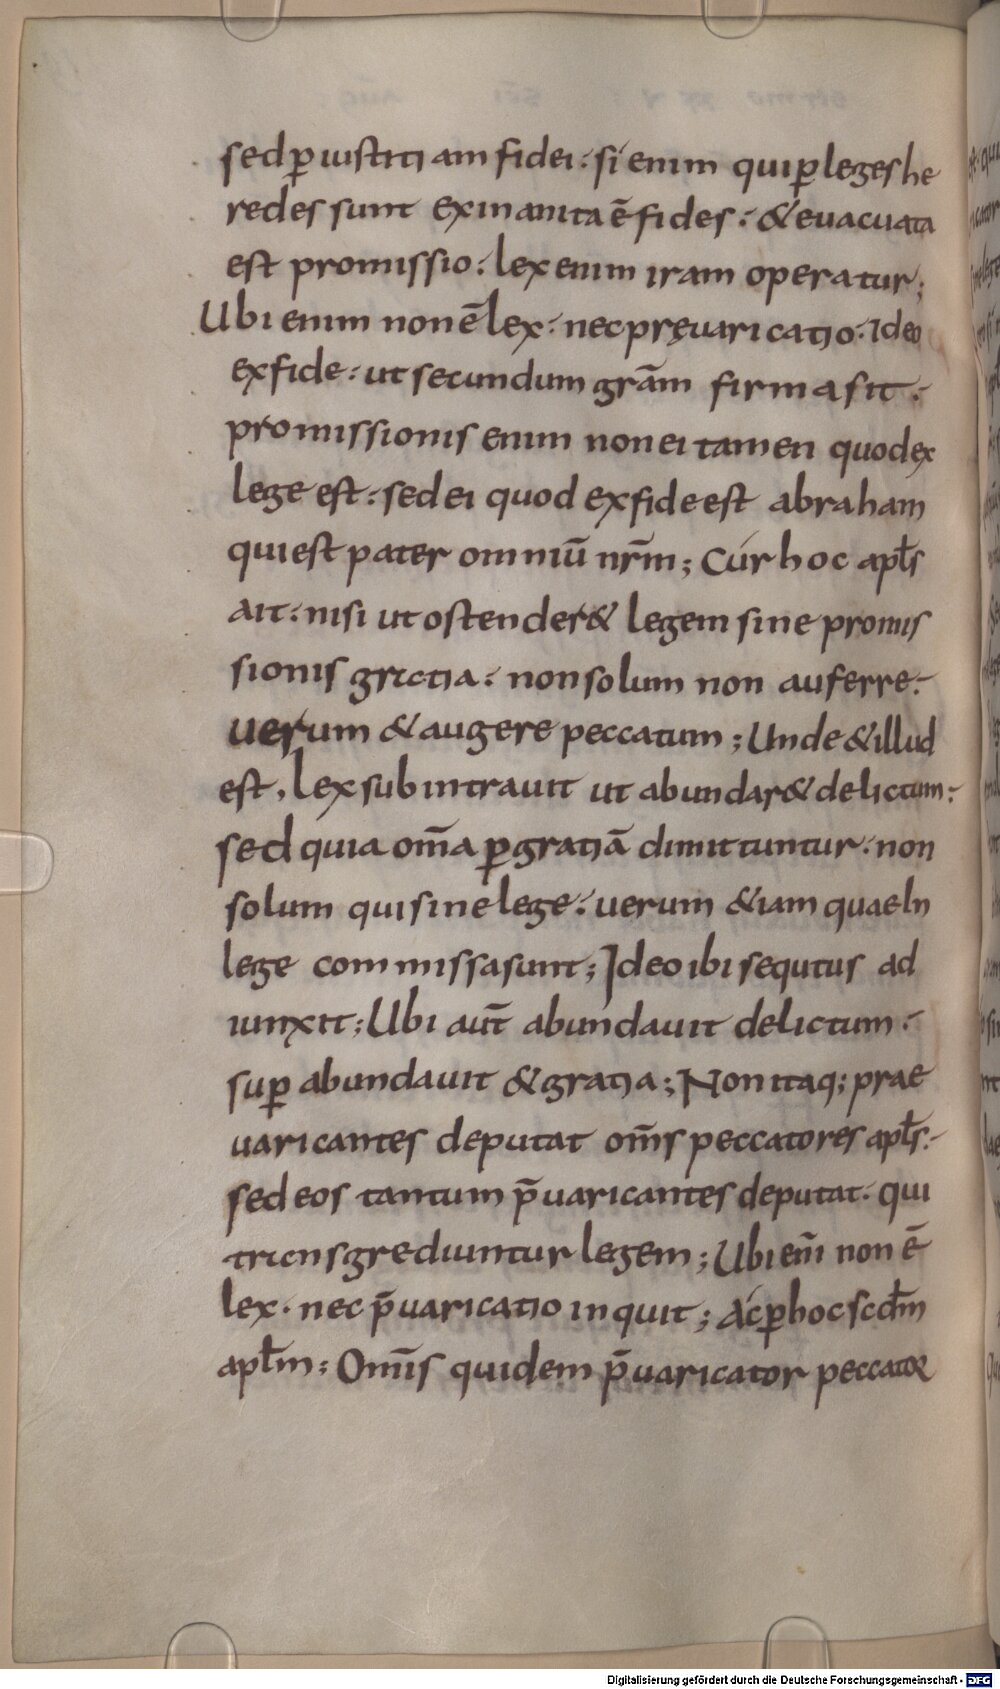 sed ꝑ iustitiam fidei. si enim qui ꝑ leges he
redes sunt exinanita ē fides. & euacuata
est promissio. lex enim iram operatur;
Ubi enim non ē lex. nec pręuaricatio. Ideo
ex fide. ut secundum grām firma sit.
promissionis enim non ei tamen quod ex
lege est. sed ei quod ex fide est abraham
qui est pater omniū nr̄m; Cur hoc apłs
ait. nisi ut ostender& legem sine promis
sionis gratia. non solum non auferre.
uerum & augere peccatum; Unde & illud
est, Lex subintrauit ut abundar& delictum.
sed quia om̄a ꝑ gratiā dimittuntur. non
solum qui sine lege. uerum &iam quae In
lege commissa sunt; Ideo ibi sequtus ad
iunxit; Ubi aut̄ abundauit delictum.
suꝑ abundauit & gratia; Non itaq; prae
uaricantes deputat om̄s peccatores apłs.
sed eos tantum p̄uaricantes deputat. qui
transgrediuntur legem; Ubi eni̅ non ē
lex. nec p̄uaricatio inquit; Ac ꝑ hoc scdm̄
apłm; Om̄is quidem p̄uaricator peccator
Digitalisierung gefördert durch die Deutsche Forschungsgemeinschaft - DFG